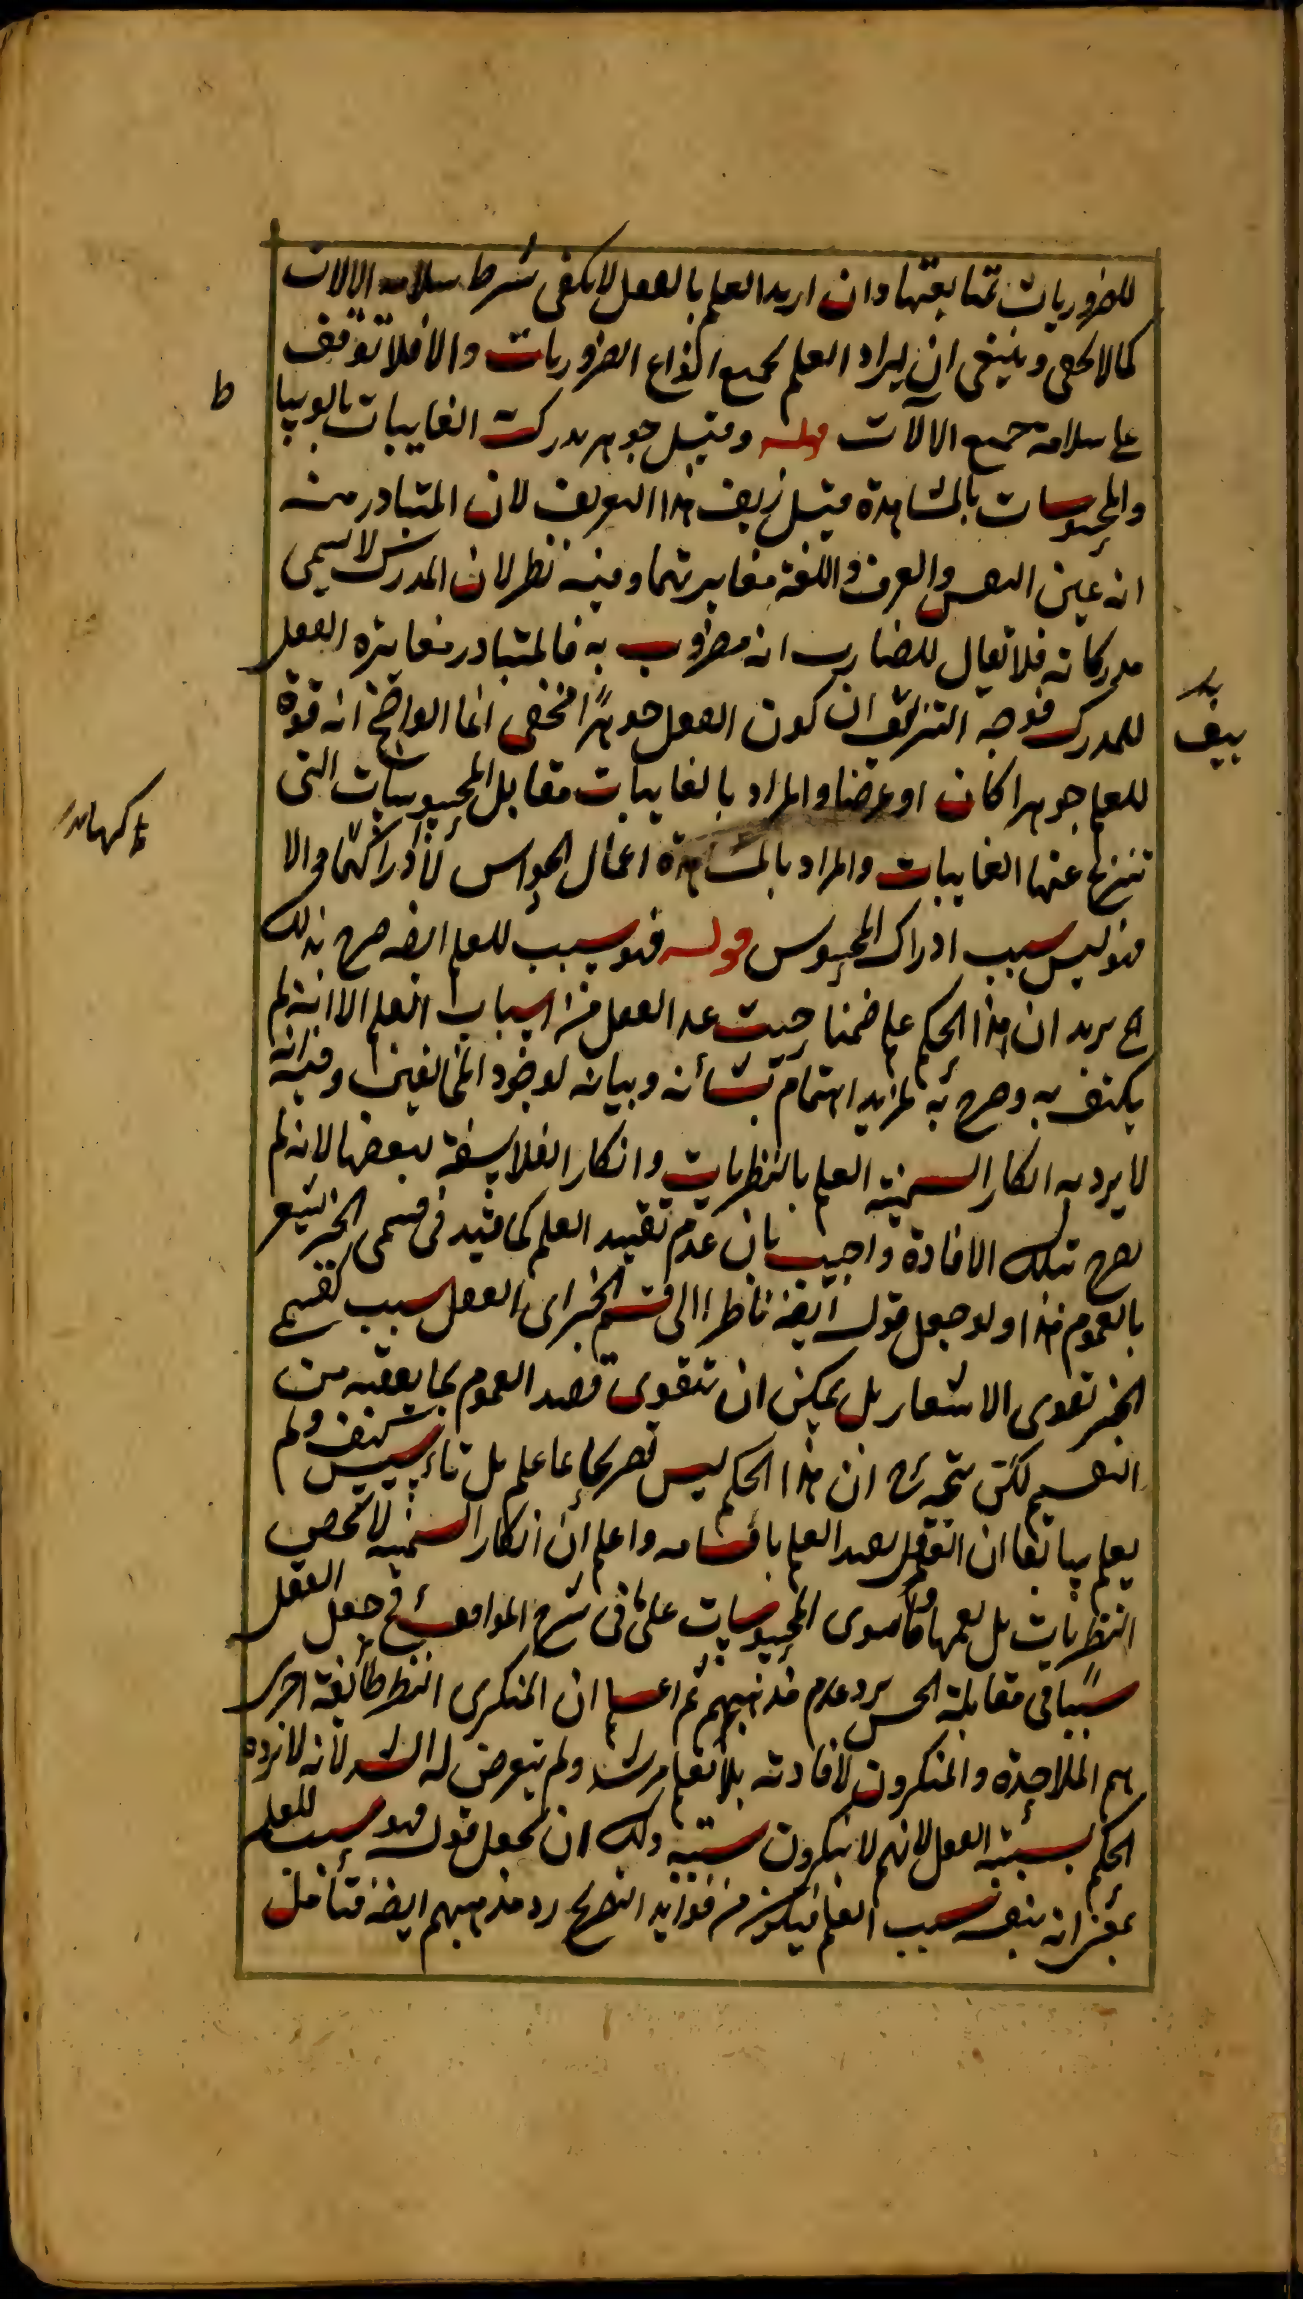 للضروريات تمنا بعتها وان اريد العلم بالفعل لا يكفى شرط سلامة الالات
كما لا يخفى وينبغى ان يراد العلم بجميع انواع الضروريات والا فلا توقف
على سلامة جميع الآلات قوله وقيل جوهر يدرك الغايبات بالوسا
ط
والمحسوسات بالمشاهدة قيل زيف هذا التعريف لان المتبادر منه
انه عين النفس والعرف واللغة مغايرتهما وفيه نظر لان المدرك لا يسمى
مدركا به فلا يقال للضارب انه مضروب به فالمتبادر مغايرة العقل
للمدرك فوجه التزييف ان كون العقل جوهرا مخفى انما الواضح انه قوة
ييف
للعلم جوهرا كان او عرضا والمراد بالغايبات مقابل المحسوسات التى
تنتزع عنها الغايبات والمراد بالمشاهدة اعمال الحواس لادراكها والا
فهو ليس سبب ادراك المحسوس قوله فهو سبب للعلم ايضه صرح بذلك
الح يريد ان هذا الحكم علم ضمنا حيث عد العقل من اسباب العلم الا انه لم
يكتف به وصرح به لمزيد اهتمام بشأنه وبيانه لوجود المخالفين وفيه انه
لا يرد به انكار السمنية العلم بالنظريات وانكار الفلاسفة لبعضها لانه لم
يصرح بتلك الافادة واجيب بان عدم تقييد العلم كما قيد فى قسمى الخبر يشعر
بالعموم هذا ولو جعل قوله ايضه ناظرا الى قسم الخبر اى العقل سبب كقسمى
الخبر تقوى الاشعار بل يمكن ان يتقوى قصد العموم بما يعقبه من
التقسيم لكن يتجه ح ان هذا الحكم ليس تصريحا بما علم بل تاسيس كيف ولم
يعلم سابقا ان العقل يفيد العلم باقسامه واعلم ان انكار السمنية لا يخص
النظريات بل يعمها وما سوى المحسوسات على ما فى شرح المواقف فح جعل العقل
سببا فى مقابلة الحس يرد عدم مذهبهم ثم اعلم ان لمنكرى النظر طائفة اخرى
هم الملاحدة والمنكرون لافادته بلا معلم مرشد ولم يتعرض له الشه لانه لا يرده
الحكم بسببية العقل لانهم لا ينكرون سببيته ولك ان تجعل قوله فهو سبب للعلم
بمعنى انه بنفسه سبب العلم فيكون من فوايد التصريح رد مذهبهم ايضه فتأمل